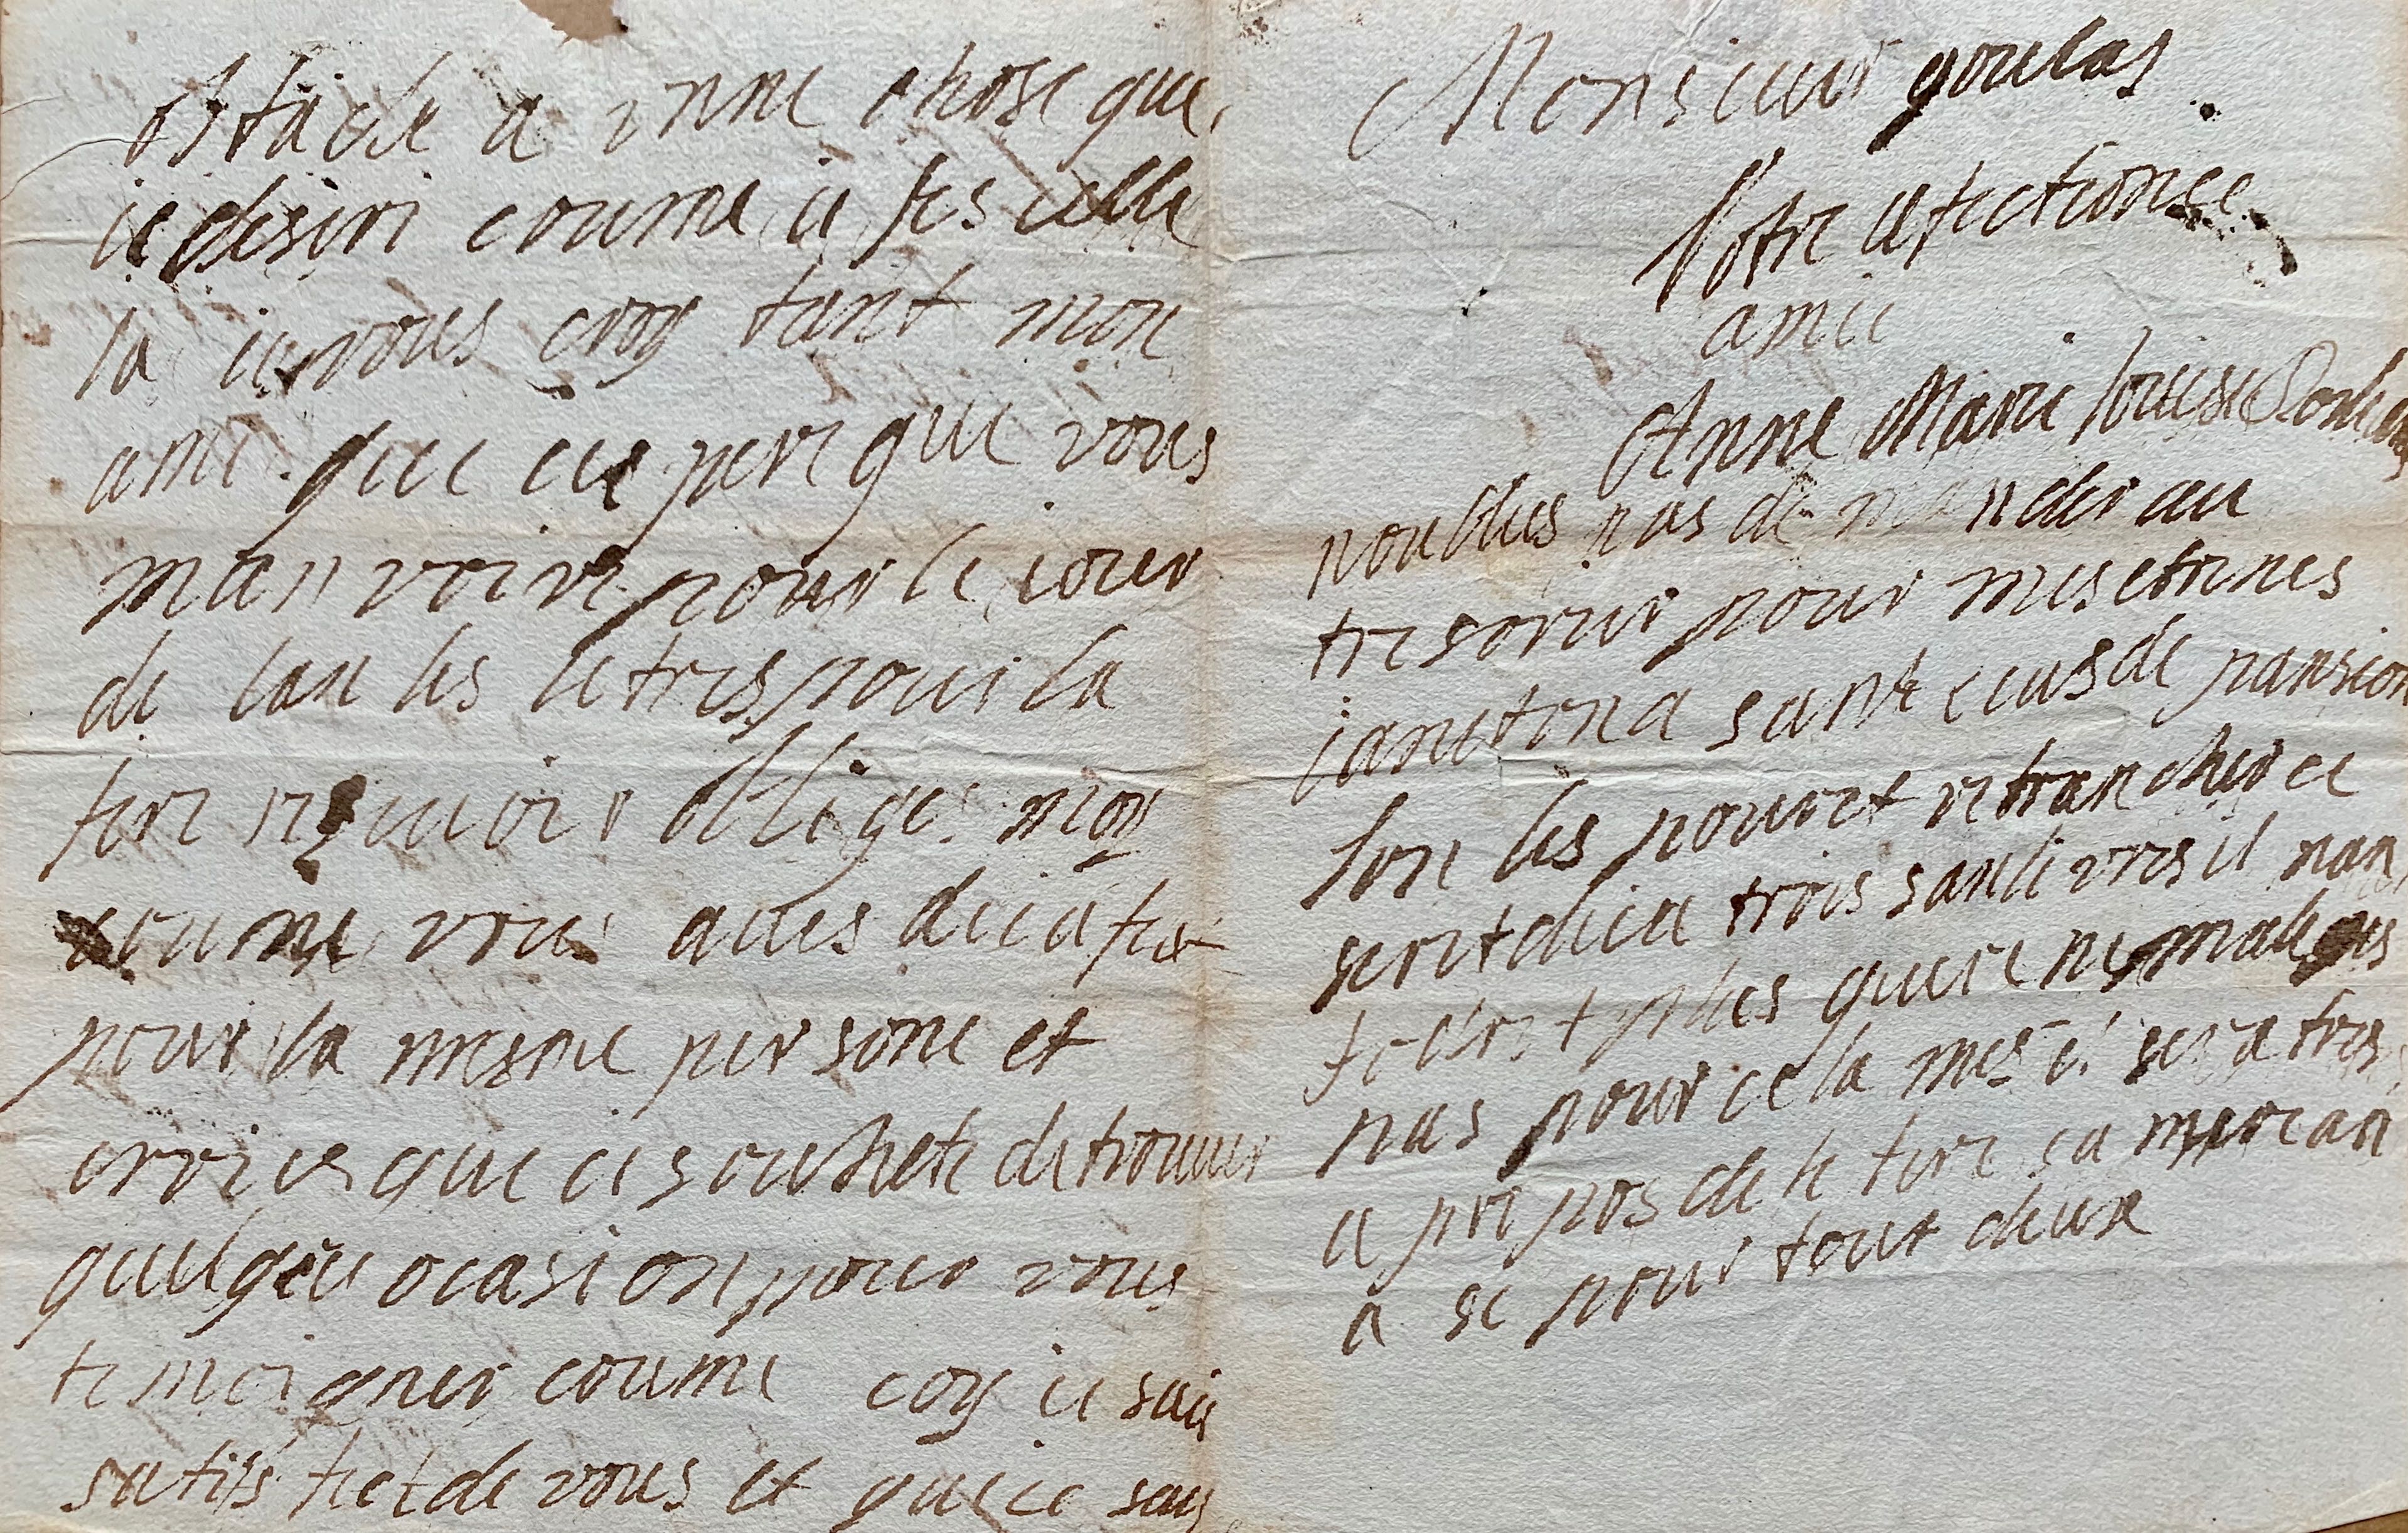 obstacle a vnne chose que
ie desire coume ie fes celle
la ie vous croy tant mon
ami que ies pere que vous
manvoire pour le iour
de lan les letres pour la
fere reseuoir oblige moy
coume vous aues deia fet
pour la mesme persone et
croies que ie souhete de trouuer
quelque ocasion pour vous
temoigner coume coy ie suis
satisfet de vous et que ie suis
Monsieur goulas
Votre afectionee
amie
Anne Marie louise Dorleans
noublies pas de mander au
tresorier pour mes etrenes
ian et on a sante eius de pansion
lon les pouret retrancher ce
seret deia trois san livres il nan
foderet plus guere ne males
pas pour cela mes i sera tres
a propos de le fere sa merian
a se pour tout deux